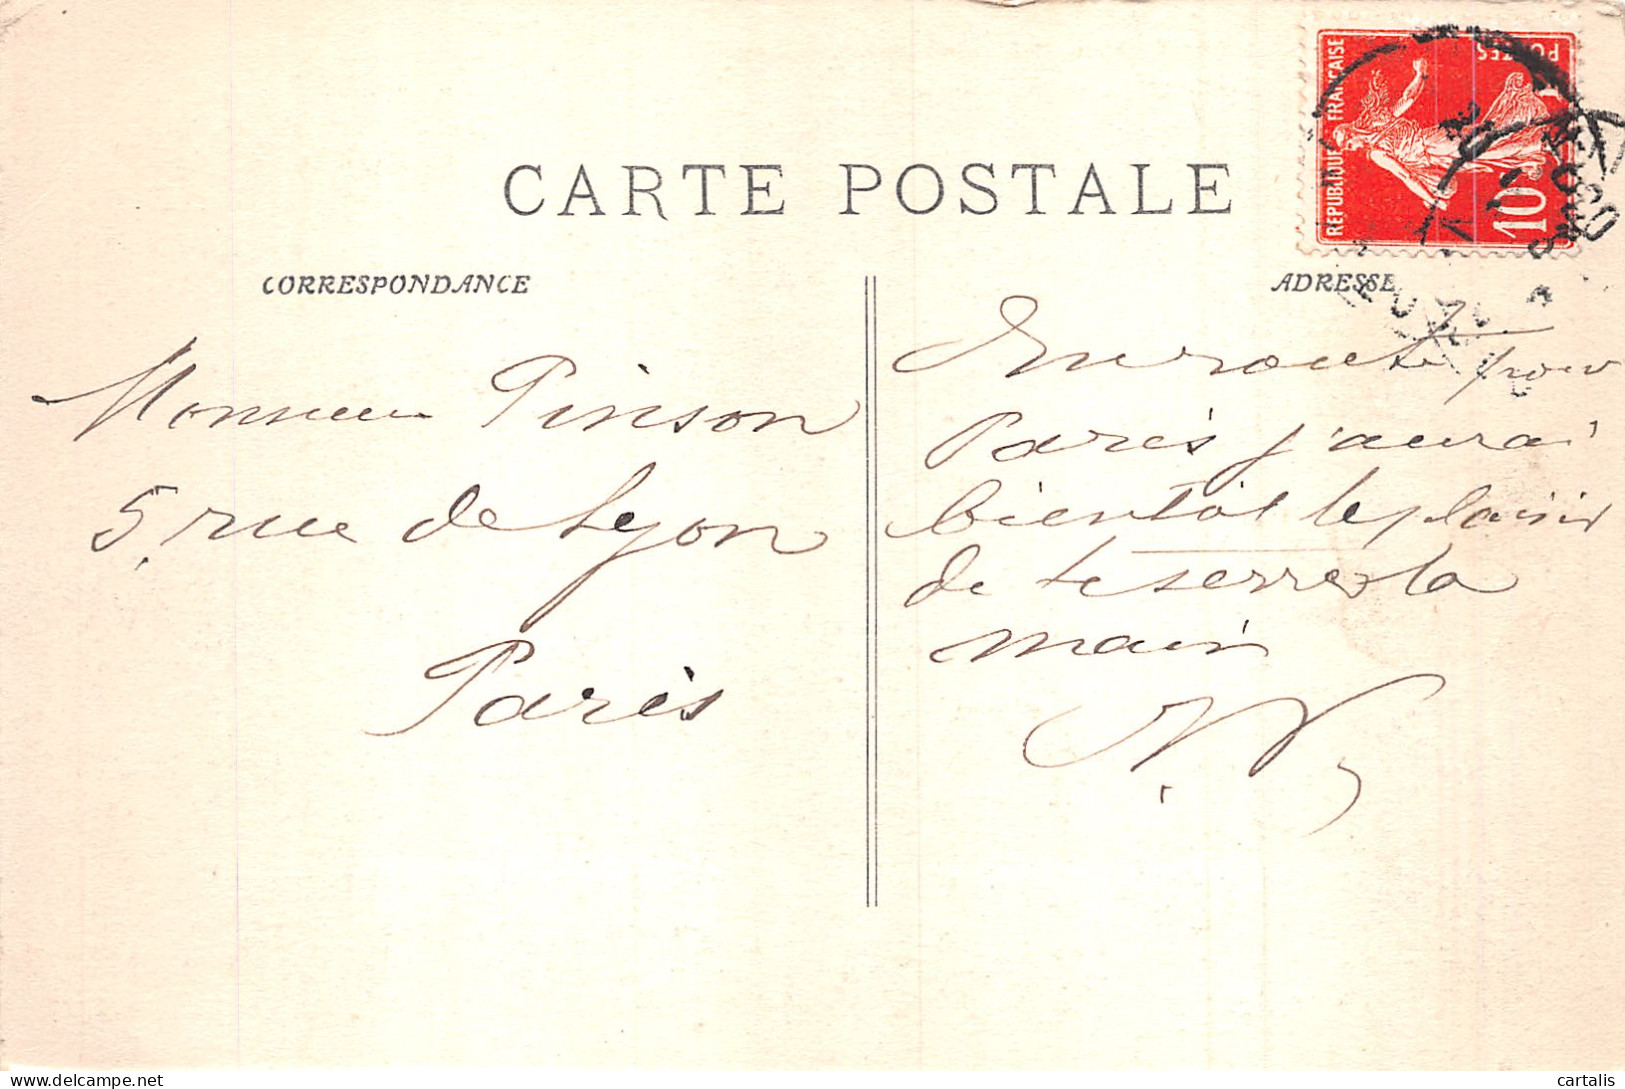 CARTE POSTALE
CORRESPONDANCE
Monsieur Pinson
5, rue de Lyon
Paris
ADRESSE
En route pour
Paris j'aurai
bientôt le plaisir
de te serrer la
main
REPUBLIQUE FRANÇAISE
POSTES
10
delcampe.net
cartalis